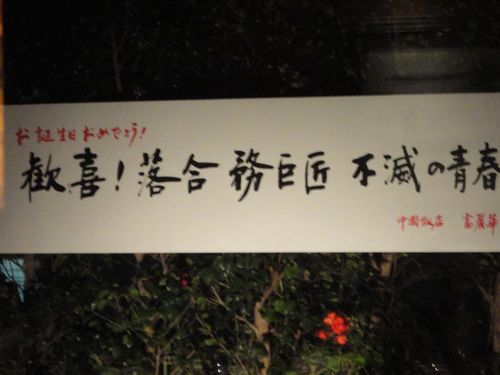 お誕生日おめでとう!
歓喜!落合 務巨匠 不滅の青春
中國飯店 富麗華